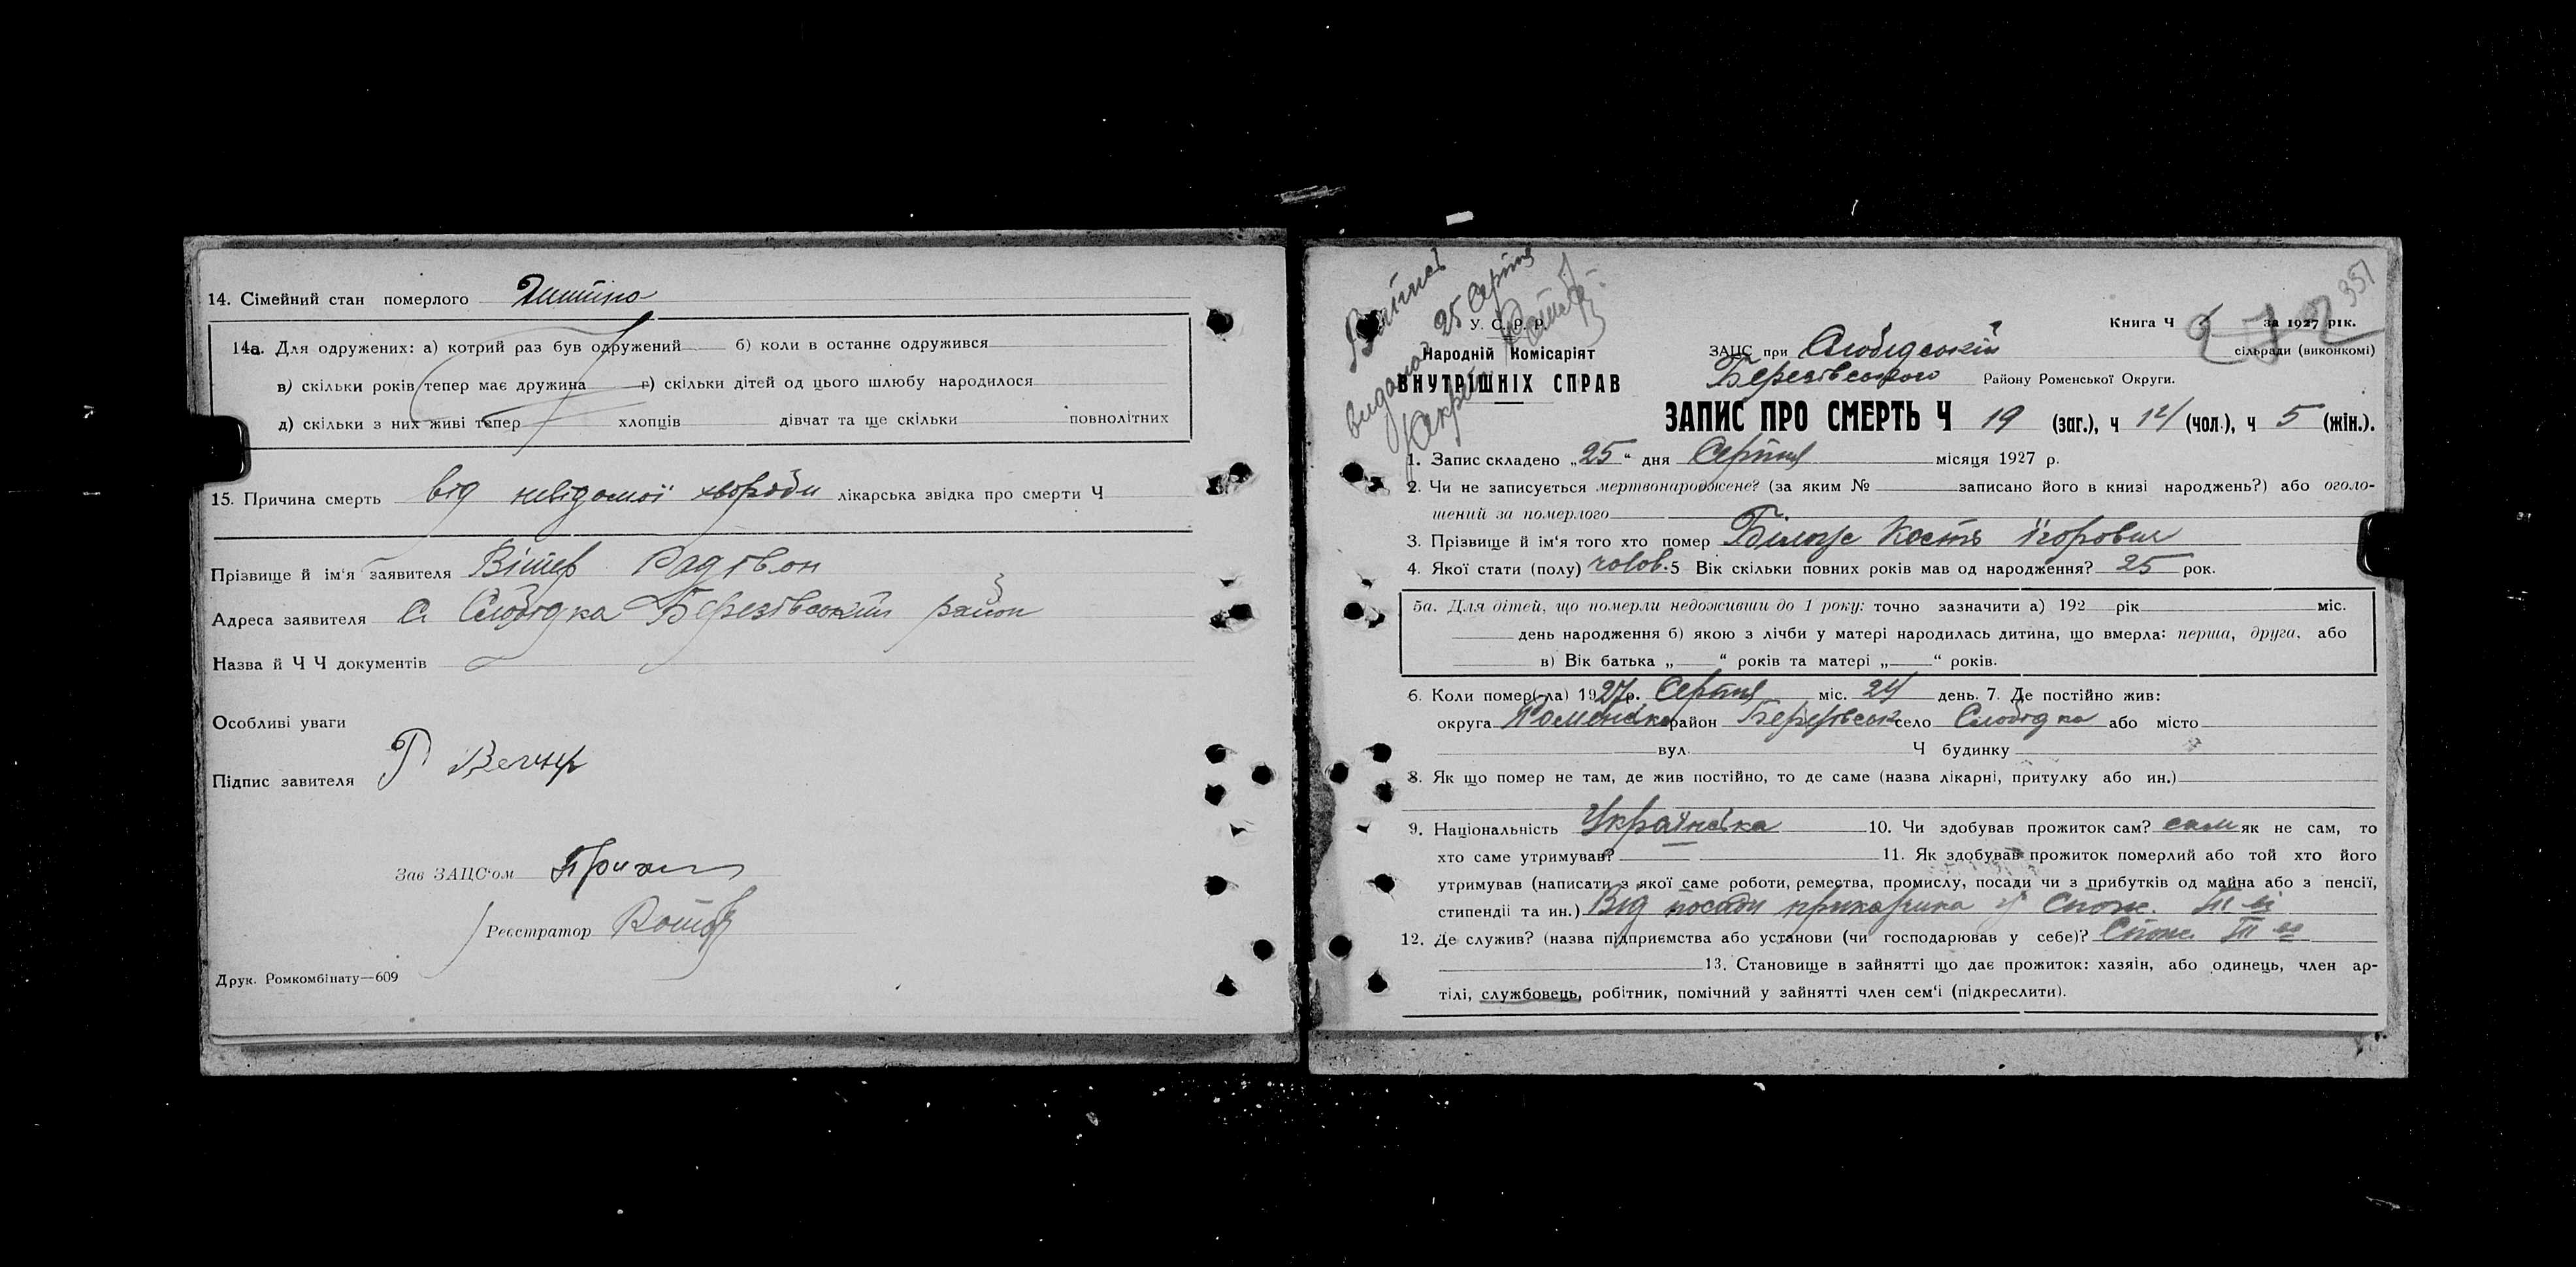 14. Сімейний стан померлого Дитина
14а. Для одружених: а) котрий раз був одружений б) коли в останнє одружився
в) скільки років тепер має дружина г) скільки дітей од цього шлюбу народилося
д) скільки з них живі тепер хлопців дівчат та ще скільки повнолітних
15. Причина смерть від невідомої хвороби лікарська звідка про смерти Ч
Прізвище й ім'я заявителя Вітер Радівон
Адреса заявителя с Слобідка Березівський район
Назва й Ч Ч документів
Особливі уваги
Підпис завителя Р
Зав ЗАЦС'ом
Реєстратор
Друк. Ромкомбінату—609
351
Витись
видана 25 Серпня
У. С. Р. Р.
Народній Комісаріят
ВНУТРІШНІХ СПРАВ
Книга Ч за 1927 рік.
ЗАЦС при Слобідський сільради (виконкомі)
Березівського Району Роменської Округи.
ЗАПИС ПРО СМЕРТЬ Ч 19 (заг.), ч 14 (чол.), ч 5 (жін.).
1. Запис складено „25“ дня Серпня місяця 1927 р.
2. Чи не записується мертвонароджене? (за яким № записано його в книзі народжень?) або оголо-
шений за померлого
3. Прізвище й ім'я того хто помер Костя
4. Якої стати (полу) чолов. 5 Вік скільки повних років мав од народження? 25 рок.
5а. Для дітей, що померли недоживши до 1 року: точно зазначити а) 192 рік міс.
день народження б) якою з лічби у матері народилась дитина, що вмерла: перша, друга, або
в) Вік батька „ “ років та матері „ “ років.
6. Коли помер(-ла) 1927р. Серпня міс. 24 день. 7. Де постійно жив:
округа Роменська район Березівськ село Слобідка або місто
вул. Ч будинку
8. Як що помер не там, де жив постійно, то де саме (назва лікарні, притулку або ин.)
9. Національність Українська 10. Чи здобував прожиток сам? сам як не сам, то
хто саме утримував? 11. Як здобував прожиток померлий або той хто його
утримував (написати з якої саме роботи, ремества, промислу, посади чи з прибутків од майна або з пенсії,
стипендії та ин.) Від посади прикащика у Спож. Т-ві
12. Де служив? (назва підприємства або установи (чи господарював у себе)? Спож. Т-во
13. Становище в зайнятті що дає прожиток: хазяін, або одинець, член ар-
тілі, службовець, робітник, помічний у зайнятті член сем'і (підкреслити).